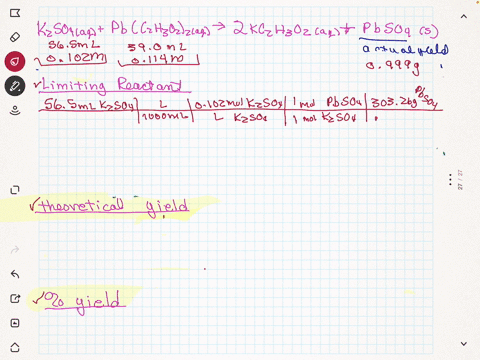 K₂SO₄(aq) + Pb(C₂H₃O₂)₂(aq) → 2KC₂H₃O₂(aq) + PbSO₄(s)
56.5mL 39.0mL actual yield
0.102m 0.114m 0.999g
✓Limiting Reactant
56.5mL K₂SO₄ | L | 0.102mol K₂SO₄ | 1mol PbSO₄ | 303.26g PbSO₄
1000mL | L K₂SO₄ | 1mol K₂SO₄
✓theoretical yield
✓% yield
27 / 27